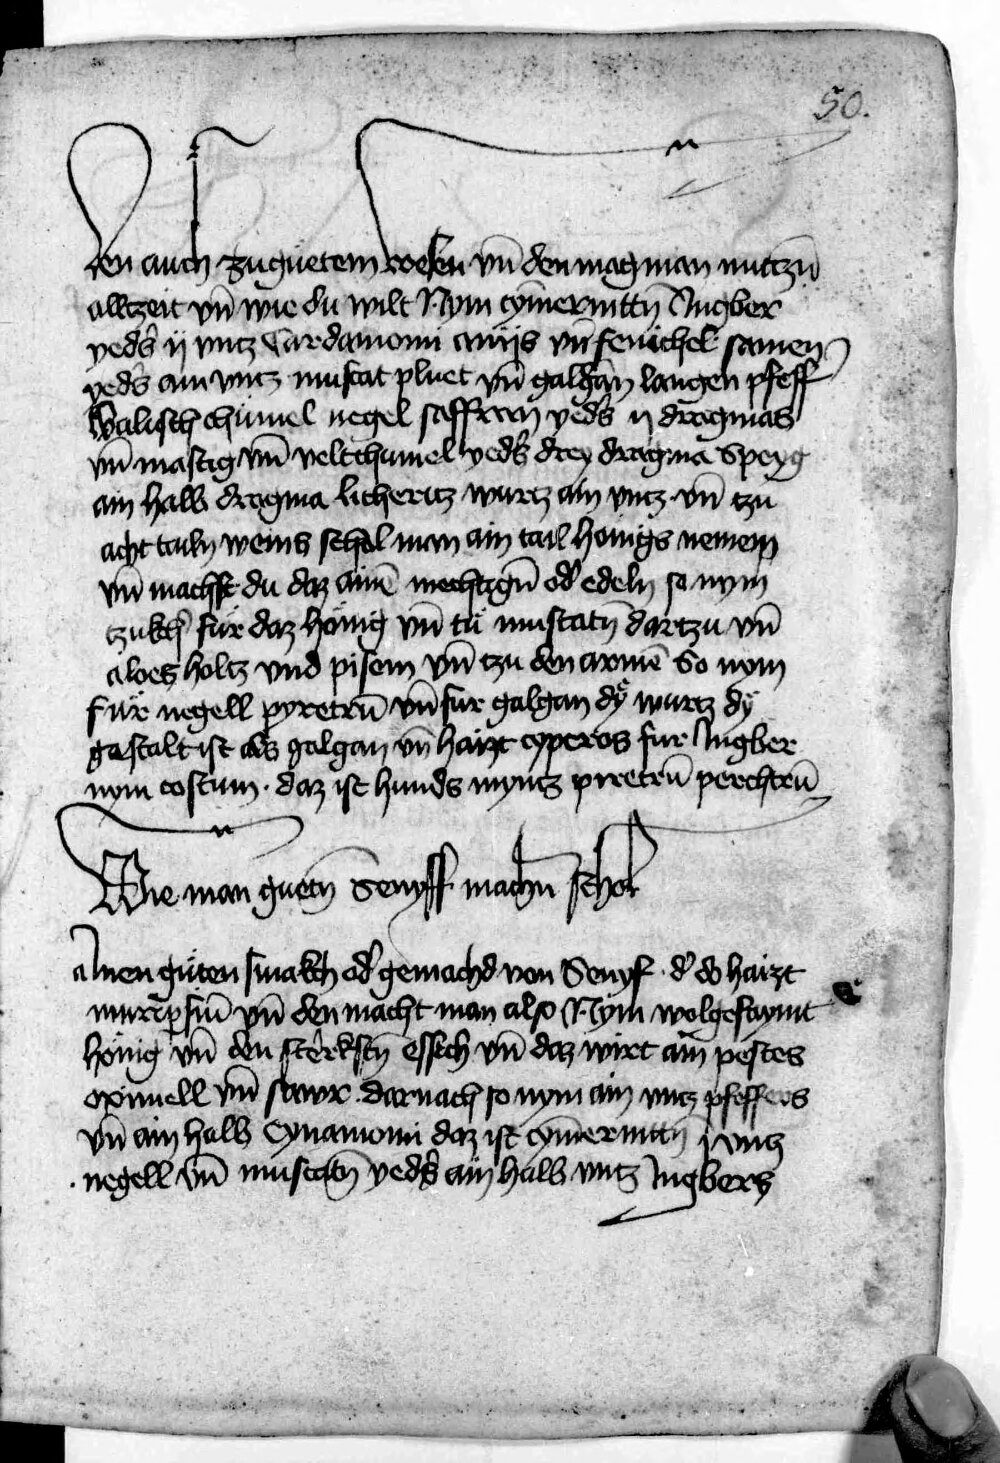 50.
ren auch zu guetem wesen vn̄ den mag man nutczn̄
alltzeit vn̄ wie du wilt Nym cym̄ermittn̄ Ingber
yeds ij vntz Cardamomi anijs vn̄ fenichel samen
yeds ain vntz muscat pluet vn̄ galgan langen pfeff
Walisch chümel negel saffran yeds ij dragmas
vn̄ mastig vn̄ veltchumel yeds drey dragma Speyg
ain halb dragma licheritz wurtz ain vntz vn̄ tzu
acht tailn weins schol man ain tail honigs nemen
vn̄ machst du daz aine mechtign̄ od edeln so nym
tzukch für daz hönig vn̄ tü muscatn̄ dartzu vn̄
aloes holtz vnd pisem vn̄ tzu den arme So nym
für negell pyretru vn̄ fur galgan dy wurtz dy
gestalt ist als galgan vn̄ haizt cyperos fur Ingber
nym costum · daz ist hunds myntz piretru perchtru
Wie man guetn̄ Senyff machn schol
ainen güten smakch od gemachd von Senyf · d do haizt
vn̄ den macht man also Nym wolgefaymt
hönig vn̄ den sterkstn̄ essich vn̄ daz wirt ain pestes
oximell vn̄ sawr · darnach so nym ain vntz pfeffers
vn̄ ain halb Cynamomi daz ist cym̄ermittn̄ j vntz
· negell vn̄ muscatn̄ yeds ain halb vntz Ingbers